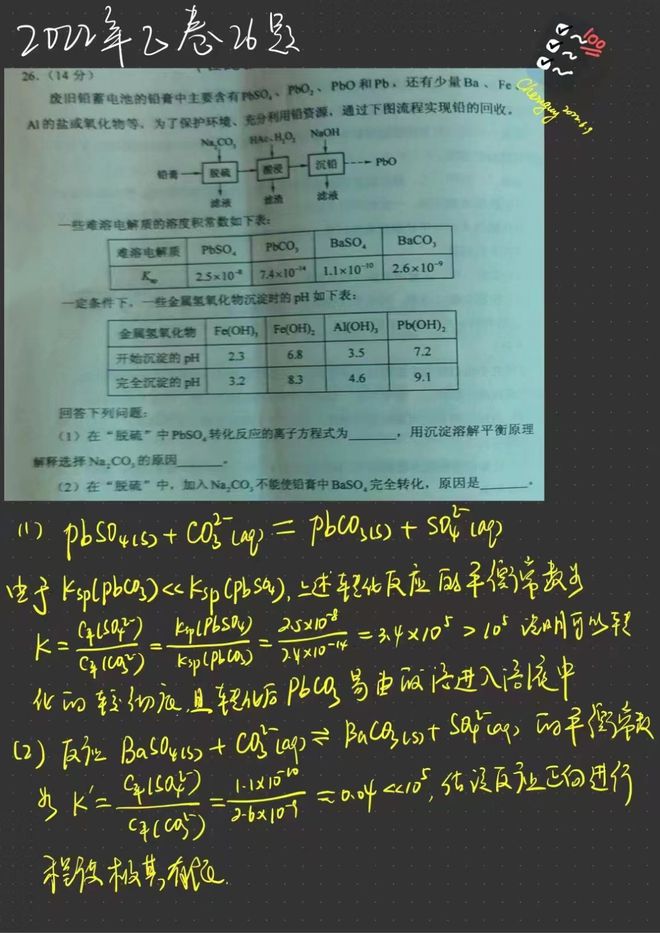 2022年乙卷26题
100
Chenguy 2022.6.9
26.（14 分）
废旧铅蓄电池的铅膏中主要含有PbSO₄、PbO₂、PbO 和 Pb，还有少量 Ba、Fe、
Al 的盐或氧化物等，为了保护环境、充分利用铅资源，通过下图流程实现铅的回收。
Na₂CO₃ HAc、H₂O₂ NaOH
铅膏 脱硫 酸浸 沉铅 PbO
滤液 滤渣 滤液
一些难溶电解质的溶度积常数如下表：
难溶电解质 PbSO₄ PbCO₃ BaSO₄ BaCO₃
Ksp 2.5×10⁻⁸ 7.4×10⁻¹⁴ 1.1×10⁻¹⁰ 2.6×10⁻⁹
一定条件下，一些金属氢氧化物沉淀时的 pH 如下表：
金属氢氧化物 Fe(OH)₃ Fe(OH)₂ Al(OH)₃ Pb(OH)₂
开始沉淀的 pH 2.3 6.8 3.5 7.2
完全沉淀的 pH 3.2 8.3 4.6 9.1
回答下列问题：
（1）在“脱硫”中 PbSO₄ 转化反应的离子方程式为______，用沉淀溶解平衡原理
解释选择 Na₂CO₃ 的原因______。
（2）在“脱硫”中，加入 Na₂CO₃ 不能使铅膏中 BaSO₄ 完全转化，原因是______。
(1) PbSO₄(s) + CO₃²⁻(aq) = PbCO₃(s) + SO₄²⁻(aq)
由于 Ksp(PbCO₃) << Ksp(PbSO₄), 上述转化反应的平衡常数为
K = C平(SO₄²⁻)/C平(CO₃²⁻) = Ksp(PbSO₄)/Ksp(PbCO₃) = 2.5×10⁻⁸/7.4×10⁻¹⁴ = 3.4×10⁵ > 10⁵ 说明可以转
化的较彻底, 且转化后 PbCO₃ 易由酸溶进入溶液中
(2) 反应 BaSO₄(s) + CO₃²⁻(aq) ⇌ BaCO₃(s) + SO₄²⁻(aq) 的平衡常数
为 K' = C平(SO₄²⁻)/C平(CO₃²⁻) = 1.1×10⁻¹⁰/2.6×10⁻⁹ ≈ 0.04 << 10⁵, 估该反应正向进行
程度极其有限.